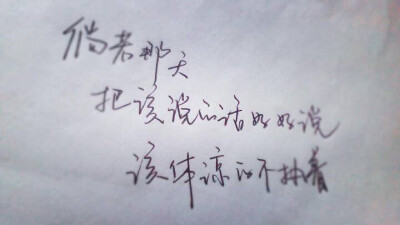 倘若那天
把该说的话好好说
该体谅的不执着